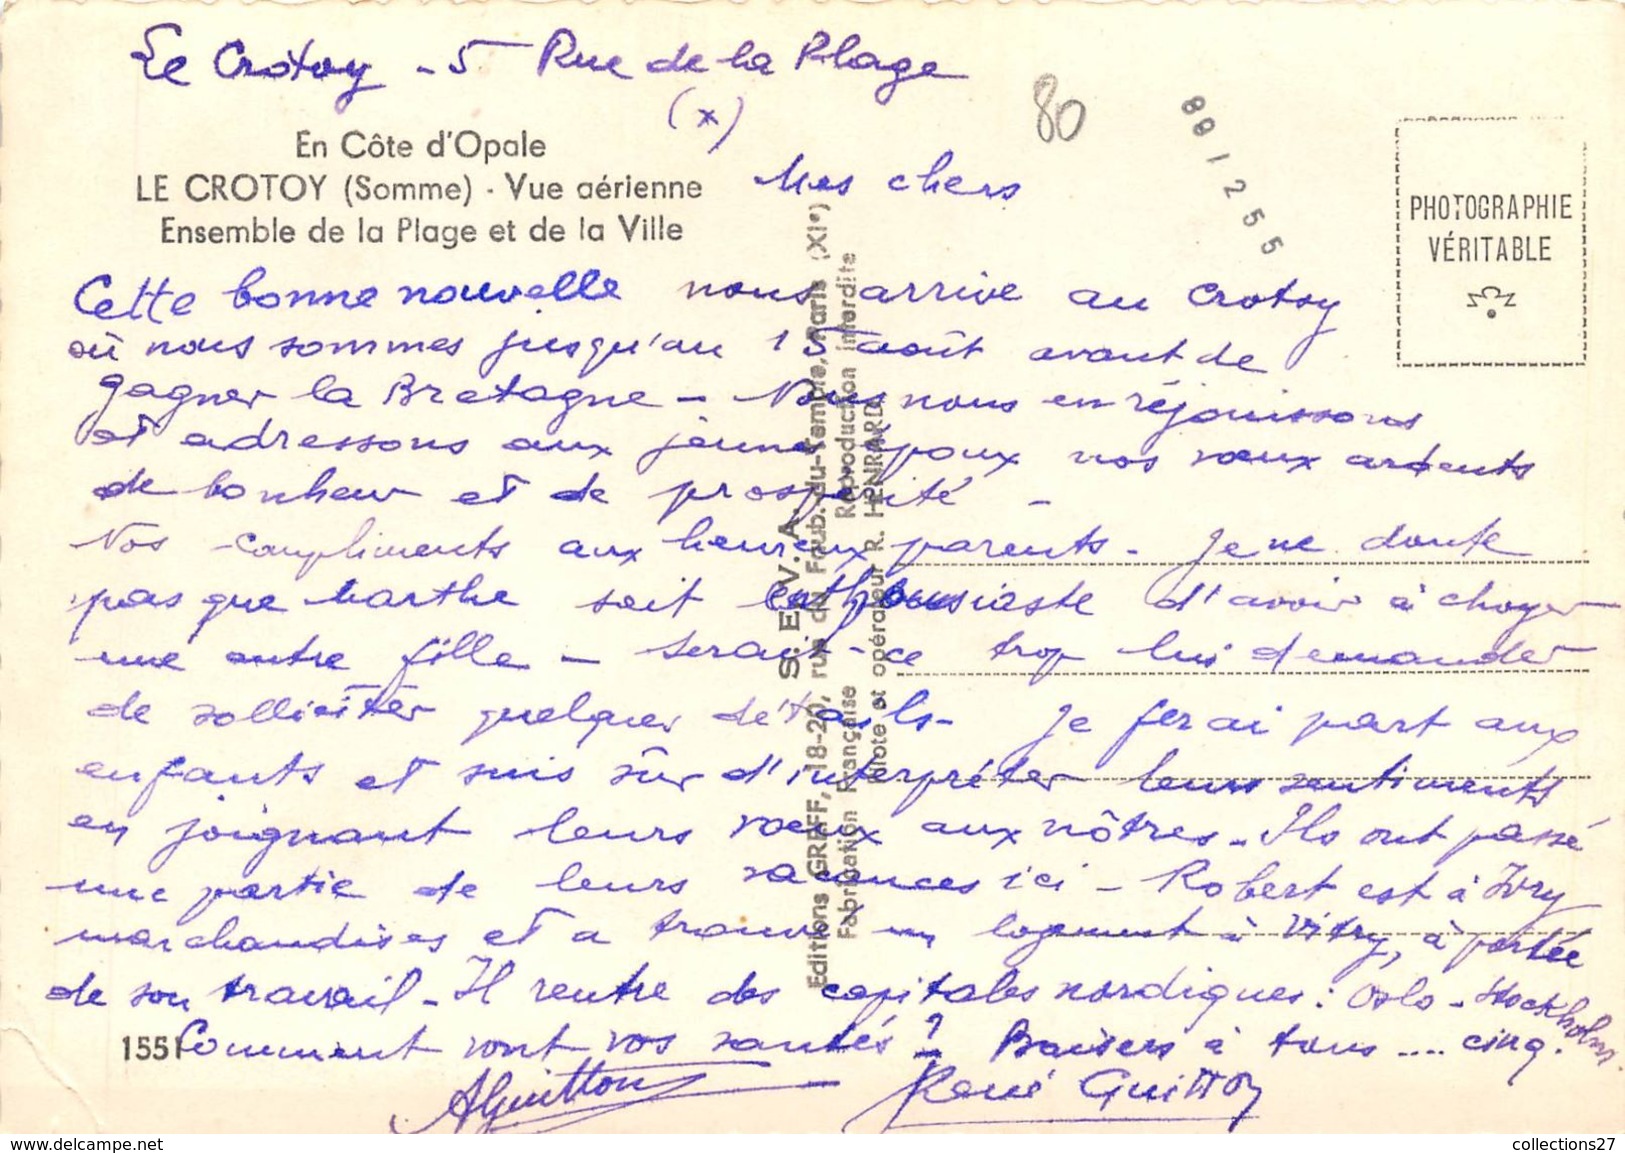 Le Crotoy - 5 Rue de la Plage
(x)
80
891255
En Côte d'Opale
LE CROTOY (Somme) - Vue aérienne
Ensemble de la Plage et de la Ville
PHOTOGRAPHIE
VÉRITABLE
Mes chers
Cette bonne nouvelle nous arrive au Crotoy
où nous sommes jusqu'au 15 août avant de
gagner la Bretagne - Nous nous en réjouissons
et adressons aux jeunes époux nos vœux ardents
de bonheur et de prospérité -
Nos compliments aux heureux parents - Je ne doute
pas que Marthe soit enthousiaste d'avoir à choyer
une autre fille - Serait-ce trop lui demander
de solliciter quelques détails - Je ferai part aux
enfants et suis sûr d'interpréter leurs sentiments
en joignant leurs vœux aux nôtres - Ils ont passé
une partie de leurs vacances ici - Robert est à Ivry
marchandises et a trouvé un logement à Vitry, à portée
de son travail - Il rentre des capitales nordiques : Oslo - Stockholm
Comment vont vos santés ? Baisers à tous .... cinq.
AGuitton
René Guitton
1551
S. E. V. A.
Editions GREFF, 18-20, rue du Faub.-du-Temple, Paris (XIe)
Fabrication Française Reproduction interdite
Pilote et opérateur R. HENRARD
collections27
www.delcampe.net